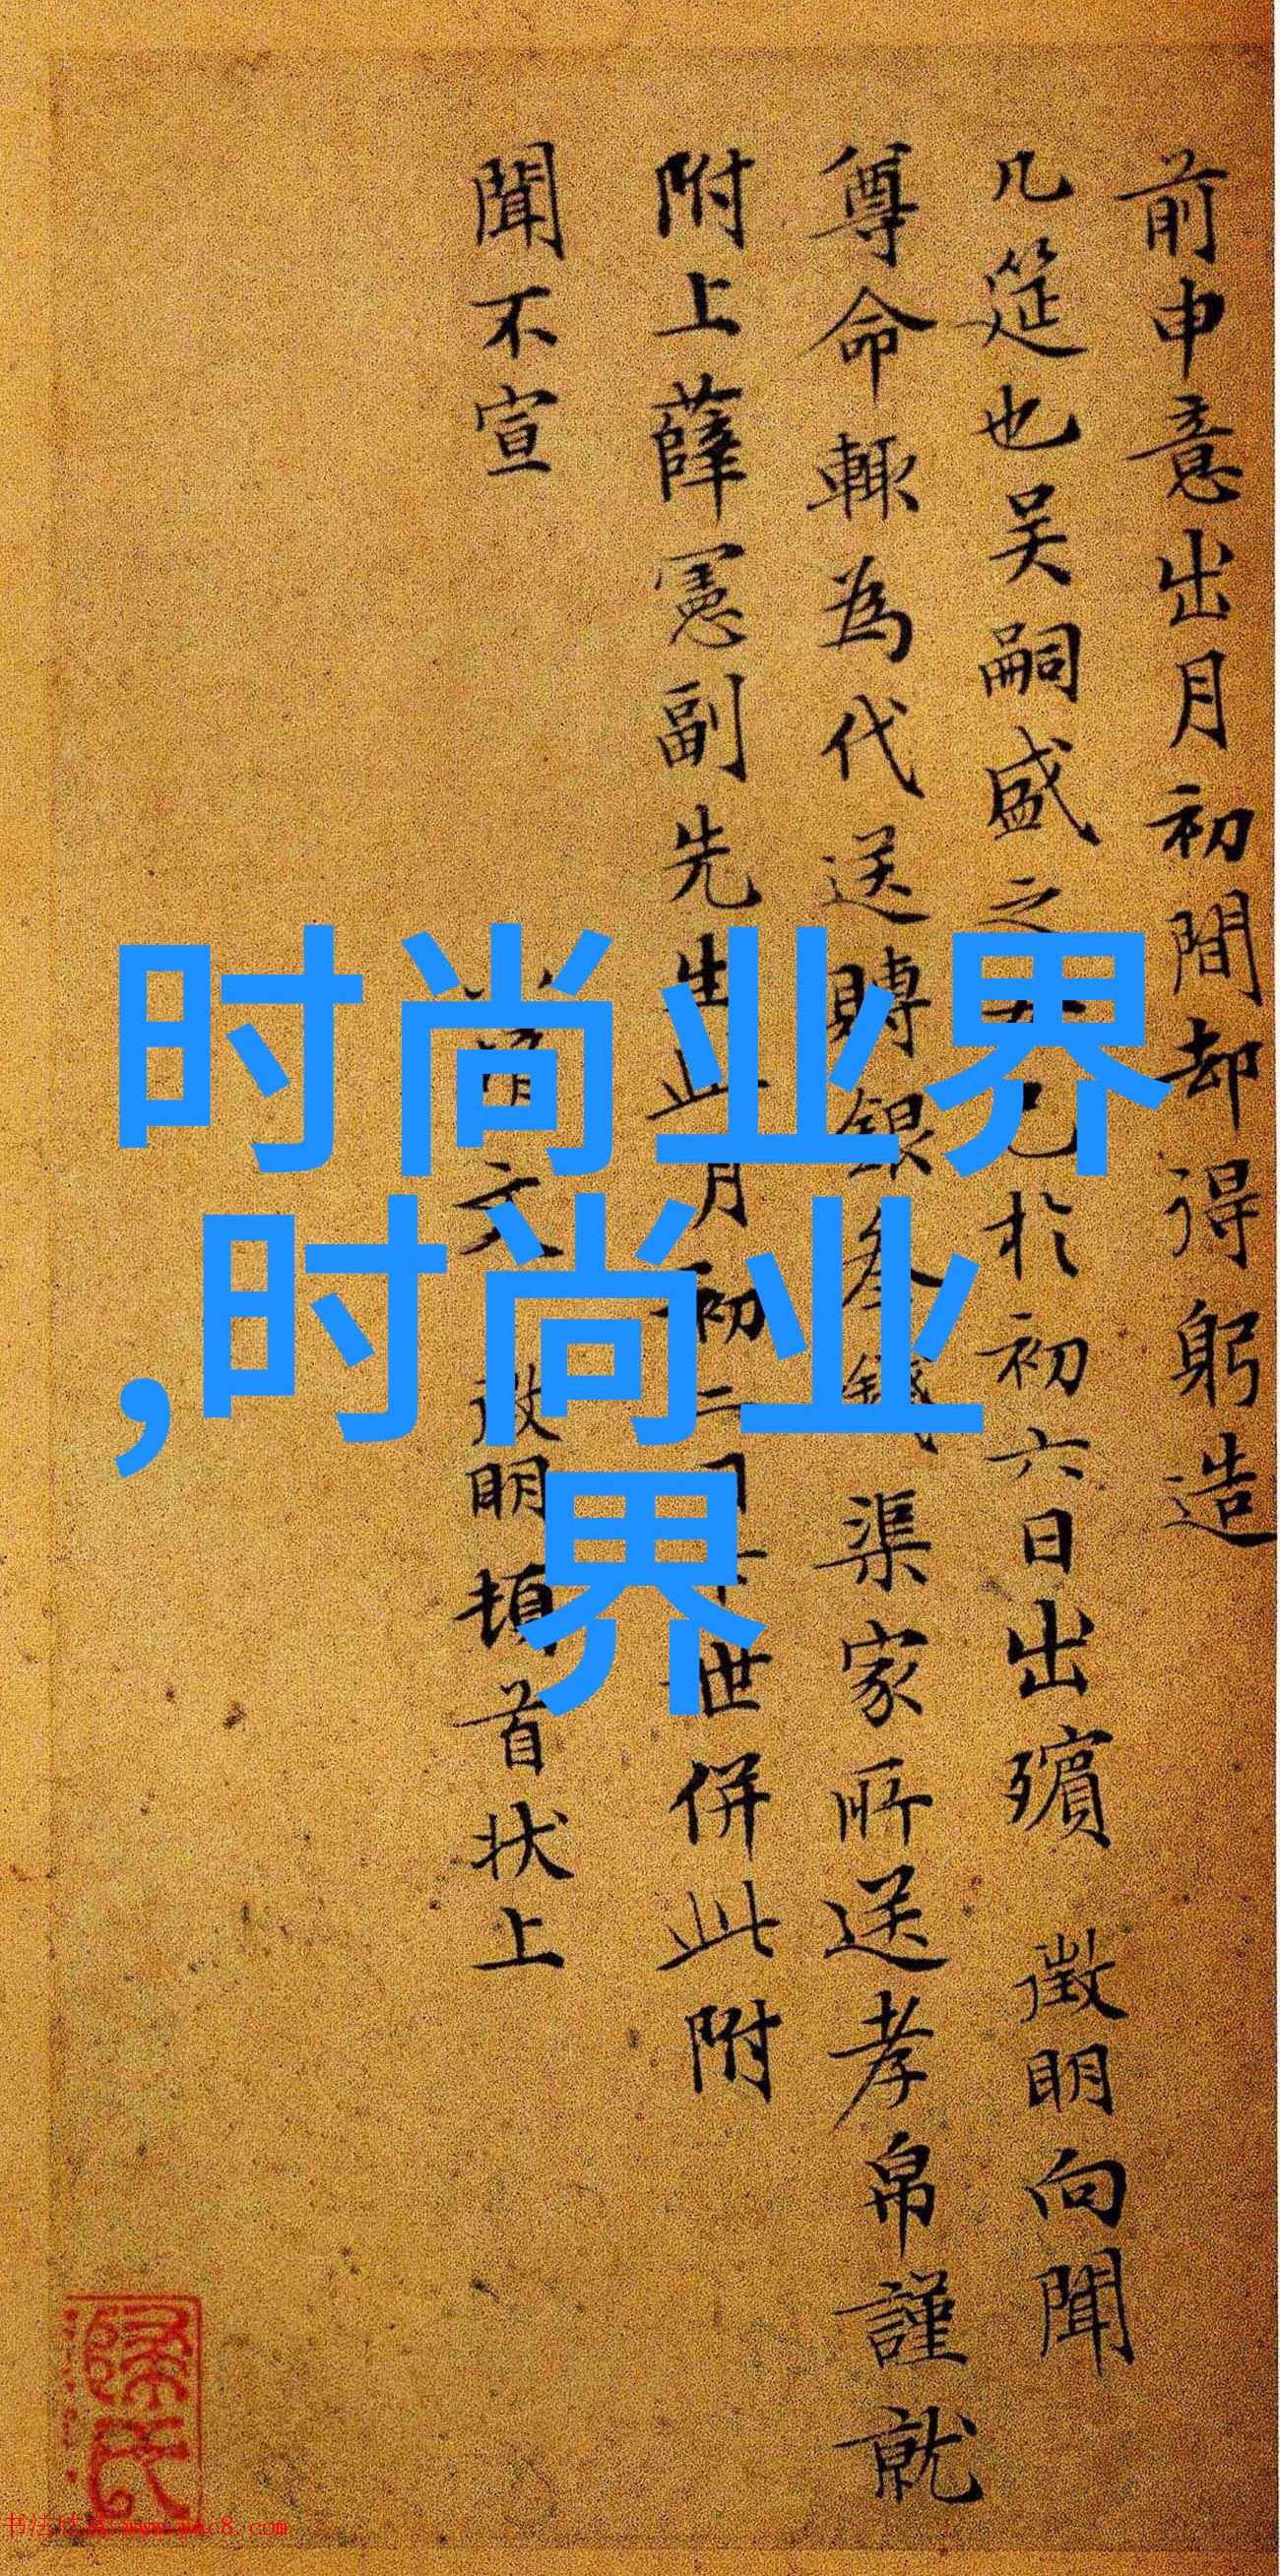 前申意出月初間却得躬造
几筵也吴嗣盛之已於初六日出殯 徵明向聞
尊命輙為代送賻銀叁錢渠家所送孝帛謹就
附上薛憲副先生此月初二日世併此附
聞不宣
文徵明頓首状上
时尚业界
,时尚业
界
书法欣赏 www.yac8.com